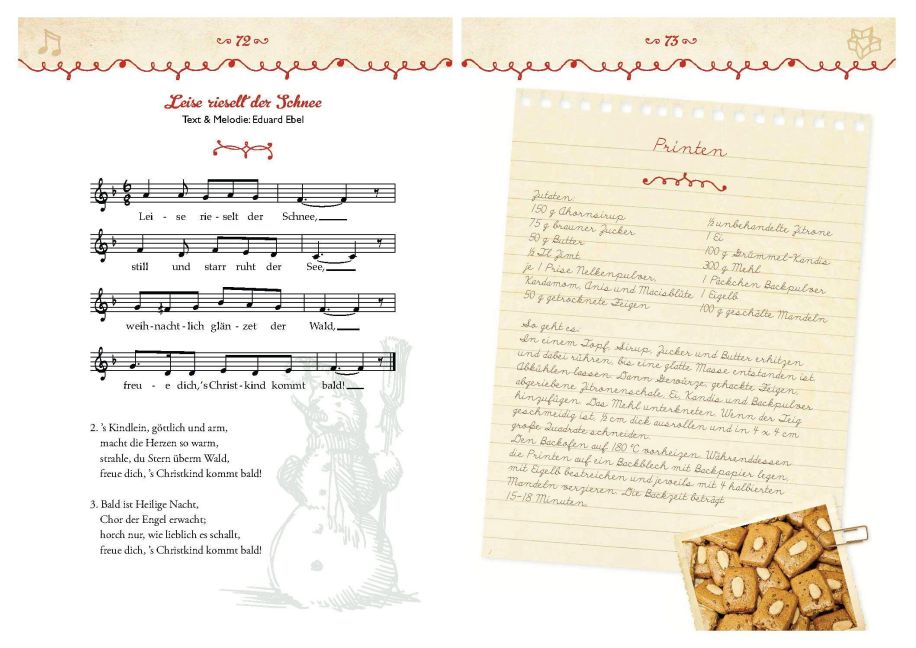 72
Leise rieselt der Schnee
Text & Melodie: Eduard Ebel
6
8
Lei - se rie - selt der Schnee,
still und starr ruht der See,
weih - nacht - lich glän - zet der Wald,
freu - e dich, 's Christ - kind kommt bald!
2. 's Kindlein, göttlich und arm,
macht die Herzen so warm,
strahle, du Stern überm Wald,
freue dich, 's Christkind kommt bald!
3. Bald ist Heilige Nacht,
Chor der Engel erwacht;
horch nur, wie lieblich es schallt,
freue dich, 's Christkind kommt bald!
73
Printen
Zutaten:
150 g Ahornsirup
75 g brauner Zucker
50 g Butter
½ TL Zimt
je 1 Prise Nelkenpulver,
Kardamom, Anis und Macisblüte
50 g getrocknete Feigen
½ unbehandelte Zitrone
1 Ei
100 g Grümmel-Kandis
300 g Mehl
1 Päckchen Backpulver
1 Eigelb
100 g geschälte Mandeln
So geht es:
In einem Topf, Sirup, Zucker und Butter erhitzen
und dabei rühren, bis eine glatte Masse entstanden ist.
Abkühlen lassen. Dann Gewürze, gehackte Feigen,
abgeriebene Zitronenschale, Ei, Kandis und Backpulver
hinzufügen. Das Mehl unterkneten. Wenn der Teig
geschmeidig ist, ½ cm dick ausrollen und in 4 x 4 cm
große Quadrate schneiden.
Den Backofen auf 180 °C vorheizen. Währenddessen
die Printen auf ein Backblech mit Backpapier legen,
mit Eigelb bestreichen und jeweils mit 4 halbierten
Mandeln verzieren. Die Backzeit beträgt
15-18 Minuten.